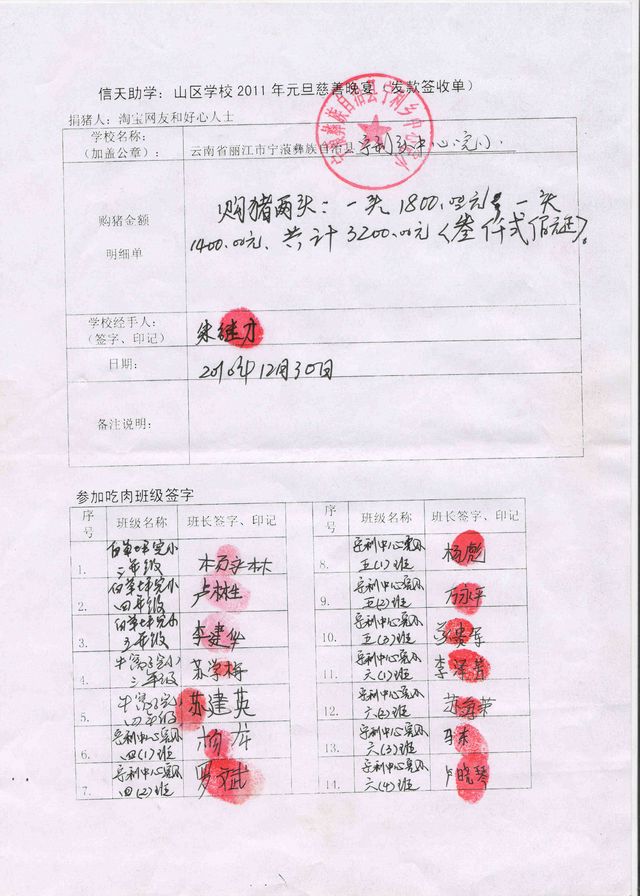 信天助学：山区学校2011年元旦慈善晚宴（发款签收单）
捐猪人：淘宝网友和好心人士
学校名称：
（加盖公章）：
云南省丽江市宁蒗彝族自治县宁利乡中心完小
购猪金额
明细单
购猪两头：一头1800.00元，一头
1400.00元、共计3200.00元
学校经手人：
（签字、印记）
朱继才
日期：
2010年12月30日
备注说明：
参加吃肉班级签字
序号 班级名称 班长签字、印记
1. 白草坪完小
三年级
2. 白草坪完小 卢林生
四年级
3. 白草坪完小 李建华
4. 苏学梅
三年级
5. 苏建英
四年级
6. 宁利中心完小 杨萍
四(1)班
7. 宁利中心完小 罗文斌
四(2)班
序号 班级名称 班长签字、印记
8. 宁利中心完小 杨彪
五(1)班
9. 宁利中心完小 万永平
五(2)班
10. 宁利中心完小
五(3)班
11. 宁利中心完小 李泽菁
六(1)班
12. 宁利中心完小
六(2)班
13. 宁利中心完小
六(3)班
14. 宁利中心完小 卢晓琴
六(4)班